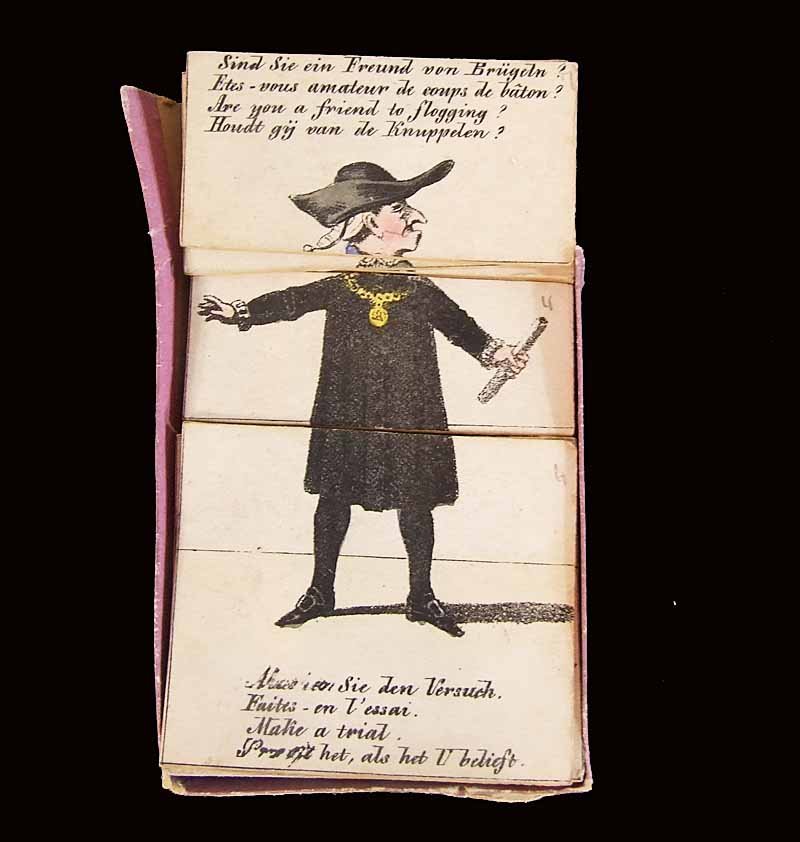 Sind Sie ein Freund von Brügeln?
Etes-vous amateur de coups de bâton?
Are you a friend to flogging?
Houdt gÿ van de Knuppelen?
4
4
Sie den Versuch.
Faites-en l'essai.
Make a trial.
het, als het U belieft.